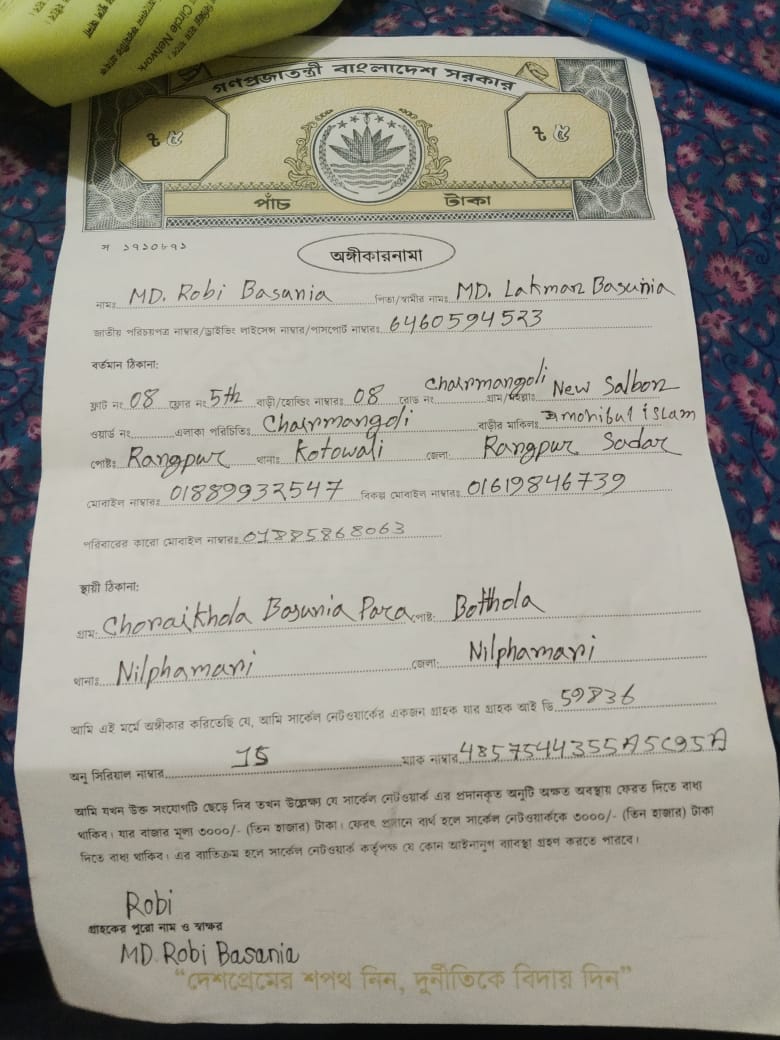 Circle Network
গণপ্রজাতন্ত্রী বাংলাদেশ সরকার
৳ ৫ ৳ ৫
পাঁচ টাকা
স ১৭১০৮৭১
অঙ্গীকারনামা
নামঃ MD. Robi Basunia পিতা/স্বামীর নামঃ MD. Lakman Basunia
জাতীয় পরিচয়পত্র নাম্বার/ড্রাইভিং লাইসেন্স নাম্বার/পাসপোর্ট নাম্বারঃ 6460594523
বর্তমান ঠিকানা:
ফ্লাট নং 08 ফ্লোর নং 5th বাড়ী/হোল্ডিং নাম্বারঃ 08 রোড নং Chairmangoli গ্রাম/মহল্লাঃ New Salbon
ওয়ার্ড নং এলাকা পরিচিতিঃ Chairmangoli বাড়ীর মালিকঃ mohibul islam
পোষ্টঃ Rangpur থানাঃ Kotowali জেলাঃ Rangpur Sadar
মোবাইল নাম্বারঃ 01889932547 বিকল্প মোবাইল নাম্বারঃ 01619846739
পরিবারের কারো মোবাইল নাম্বারঃ 01885868063
স্থায়ী ঠিকানা:
গ্রাম: Choraikhola Basunia Para পোষ্ট: Botthola
থানাঃ Nilphamari জেলা: Nilphamari
আমি এই মর্মে অঙ্গীকার করিতেছি যে, আমি সার্কেল নেটওয়ার্কের একজন গ্রাহক যার গ্রাহক আই ডি 59836
অনু সিরিয়াল নাম্বার 15 ম্যাক নাম্বার 4857544355A5C95A
আমি যখন উক্ত সংযোগটি ছেড়ে দিব তখন উল্লেক্ষ্য যে সার্কেল নেটওয়ার্ক এর প্রদানকৃত অনুটি অক্ষত অবস্থায় ফেরত দিতে বাধ্য
থাকিব। যার বাজার মূল্য ৩০০০/- (তিন হাজার) টাকা। ফেরৎ প্রদানে ব্যর্থ হলে সার্কেল নেটওয়ার্ককে ৩০০০/- (তিন হাজার) টাকা
দিতে বাধ্য থাকিব। এর ব্যতিক্রম হলে সার্কেল নেটওয়ার্ক কর্তৃপক্ষ যে কোন আইনানুগ ব্যাবস্থা গ্রহণ করতে পারবে।
Robi
গ্রাহকের পুরো নাম ও স্বাক্ষর
MD. Robi Basania
“দেশপ্রেমের শপথ নিন, দুর্নীতিকে বিদায় দিন”